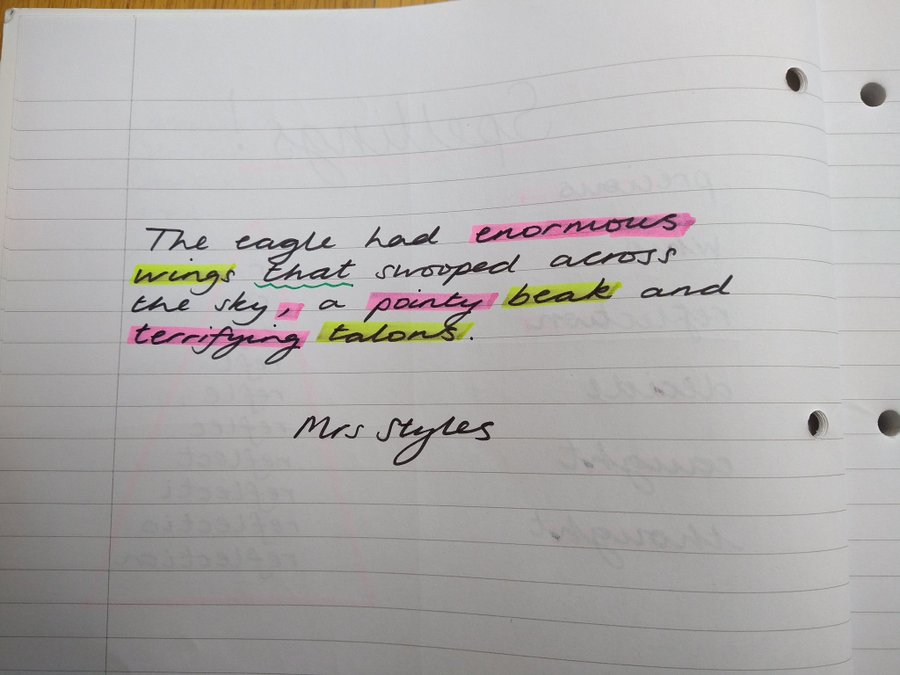 The eagle had enormous
wings that swooped across
the sky, a pointy beak and
terrifying talons.
Mrs Styles